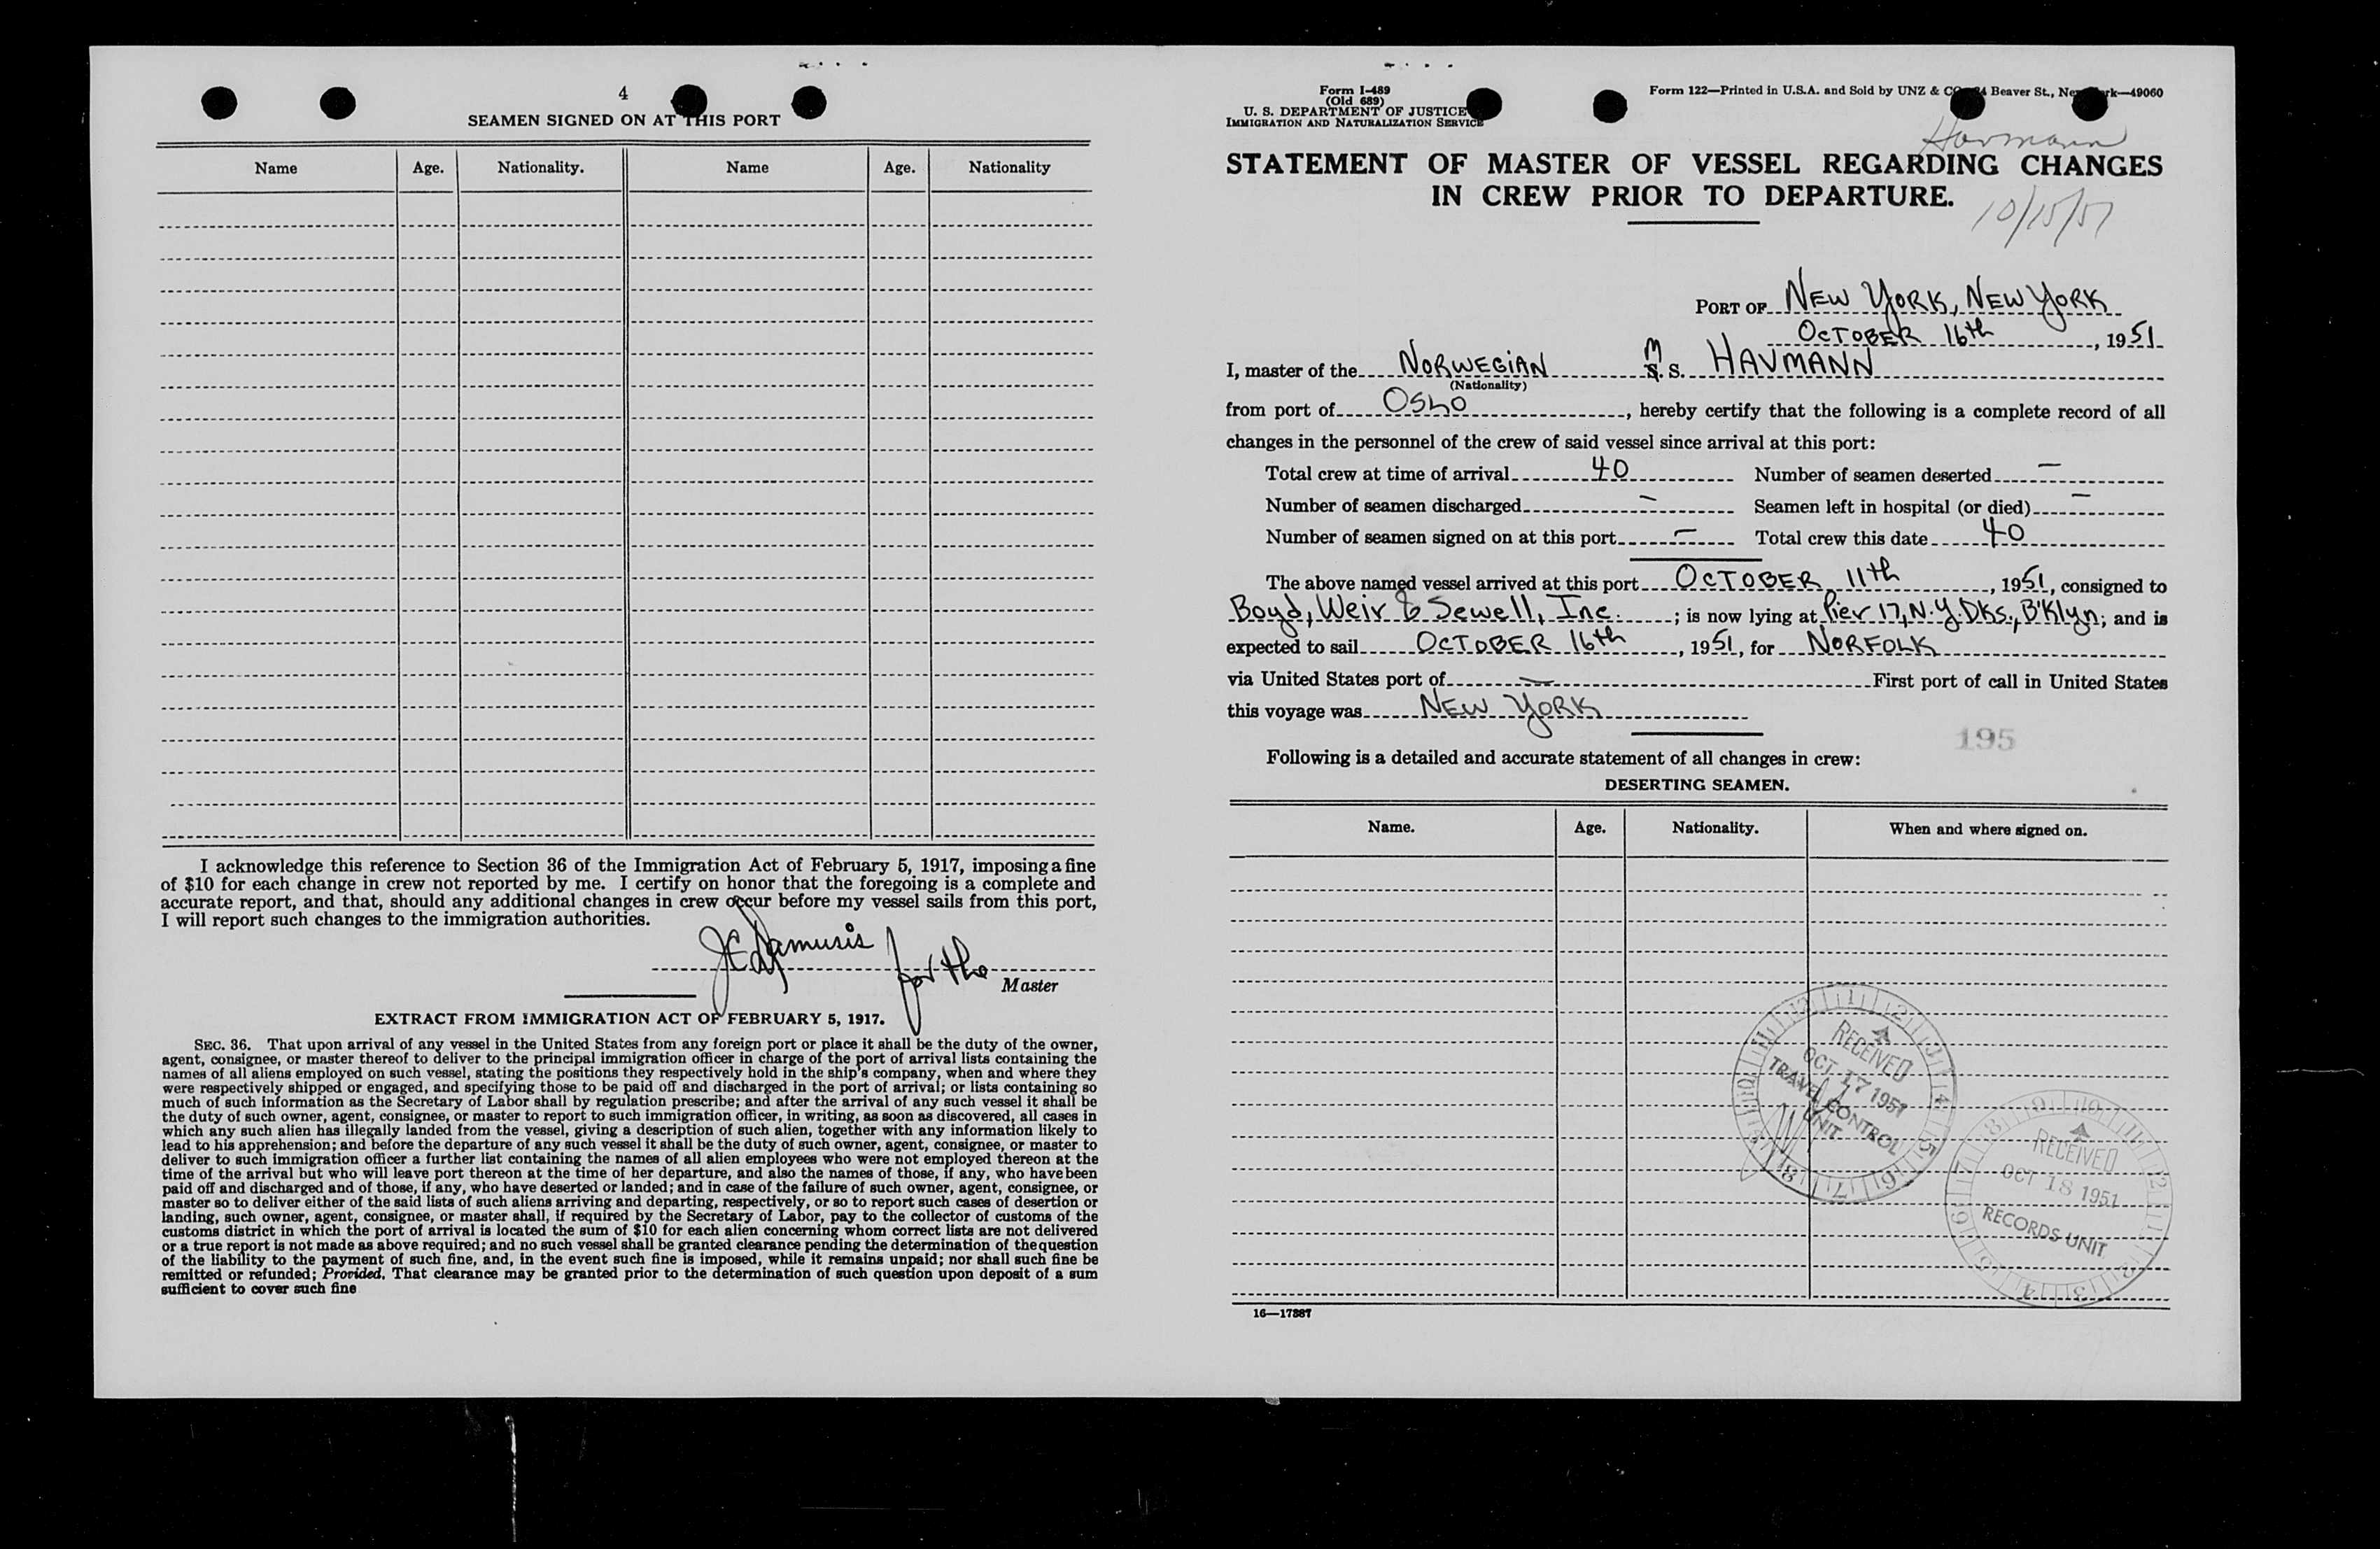 4
SEAMEN SIGNED ON AT THIS PORT
Name Age. Nationality. Name Age. Nationality
I acknowledge this reference to Section 36 of the Immigration Act of February 5, 1917, imposing a fine
of $10 for each change in crew not reported by me. I certify on honor that the foregoing is a complete and
accurate report, and that, should any additional changes in crew occur before my vessel sails from this port,
I will report such changes to the immigration authorities.
for the
Master
EXTRACT FROM IMMIGRATION ACT OF FEBRUARY 5, 1917.
SEC. 36. That upon arrival of any vessel in the United States from any foreign port or place it shall be the duty of the owner,
agent, consignee, or master thereof to deliver to the principal immigration officer in charge of the port of arrival lists containing the
names of all aliens employed on such vessel, stating the positions they respectively hold in the ship's company, when and where they
were respectively shipped or engaged, and specifying those to be paid off and discharged in the port of arrival; or lists containing so
much of such information as the Secretary of Labor shall by regulation prescribe; and after the arrival of any such vessel it shall be
the duty of such owner, agent, consignee, or master to report to such immigration officer, in writing, as soon as discovered, all cases in
which any such alien has illegally landed from the vessel, giving a description of such alien, together with any information likely to
lead to his apprehension; and before the departure of any such vessel it shall be the duty of such owner, agent, consignee, or master to
deliver to such immigration officer a further list containing the names of all alien employees who were not employed thereon at the
time of the arrival but who will leave port thereon at the time of her departure, and also the names of those, if any, who have been
paid off and discharged and of those, if any, who have deserted or landed; and in case of the failure of such owner, agent, consignee, or
master so to deliver either of the said lists of such aliens arriving and departing, respectively, or so to report such cases of desertion or
landing, such owner, agent, consignee, or master shall, if required by the Secretary of Labor, pay to the collector of customs of the
customs district in which the port of arrival is located the sum of $10 for each alien concerning whom correct lists are not delivered
or a true report is not made as above required; and no such vessel shall be granted clearance pending the determination of the question
of the liability to the payment of such fine, and, in the event such fine is imposed, while it remains unpaid; nor shall such fine be
remitted or refunded; Provided, That clearance may be granted prior to the determination of such question upon deposit of a sum
sufficient to cover such fine
Form I-489
(Old 689)
U. S. DEPARTMENT OF JUSTICE
IMMIGRATION AND NATURALIZATION SERVICE
Form 122—Printed in U.S.A. and Sold by UNZ & Beaver St., —49060
Havmann
STATEMENT OF MASTER OF VESSEL REGARDING CHANGES
IN CREW PRIOR TO DEPARTURE.
10/15/51
PORT OF NEW YORK, NEW YORK
OCTOBER 16th, 1951
I, master of the NORWEGIAN M S. HAVMANN
(Nationality)
from port of OSLO, hereby certify that the following is a complete record of all
changes in the personnel of the crew of said vessel since arrival at this port:
Total crew at time of arrival 40 Number of seamen deserted —
Number of seamen discharged — Seamen left in hospital (or died) —
Number of seamen signed on at this port — Total crew this date 40
The above named vessel arrived at this port OCTOBER 11th, 1951, consigned to
Boyd, Weir & Sewell, Inc.; is now lying at Pier 17, N.Y. Dks., B'Klyn; and is
expected to sail OCTOBER 16th, 1951, for NORFOLK
via United States port of — First port of call in United States
this voyage was NEW YORK
195
Following is a detailed and accurate statement of all changes in crew:
DESERTING SEAMEN.
Name. Age. Nationality. When and where signed on.
RECEIVED
OCT 17 1951
TRAVEL CONTROL
UNIT
RECEIVED
OCT 18 1951
RECORDS UNIT
16—17887